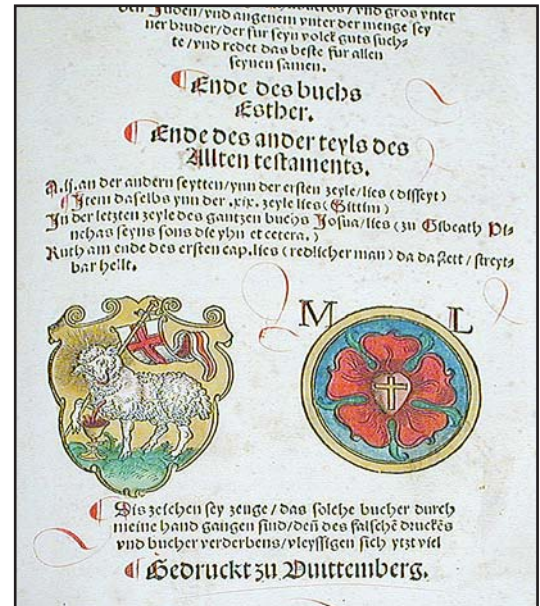 den Juden/vnd angenem vnter der menge sey
ner bruder/der fur seyn volck guts such⸗
te/vnd redet das beste fur allen
seynen samen.
¶ Ende des buchs
Esther.
¶ Ende des ander teyls des
Allten testaments.
A.ij.an der andern seytten/ynn der ersten zeyle/lies (disseyt)
¶ Item daselbs ynn der .xix. zeyle lies (Sittim)
In der letzten zeyle des gantzen buchs Josua/lies (zu Gibeath Pi⸗
nehas seyns sons die yhn et cetera.)
Ruth am ende des ersten cap.lies (redlicher man) da da stett / streyt⸗
bar hellt.
M L
¶ Dis zeichen sey zeuge / das solche bucher durch
meine hand gangen sind/deñ des falschẽ druckẽs
vnd bucher verderbens/vleyssigen sich ytzt viel
¶ Gedruckt zu Vuittemberg.